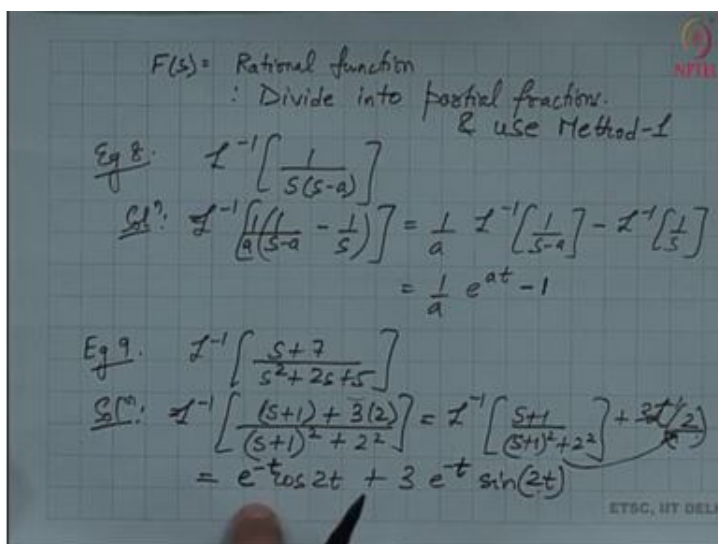 F(s) = Rational function
NPTEL
: Divide into partial fractions.
& use Method-1
Eg 8. L⁻¹[1/(s(s-a))]
Solⁿ: L⁻¹[1/a(1/(s-a) - 1/s)] = 1/a L⁻¹[1/(s-a)] - L⁻¹[1/s]
= 1/a e^{at} - 1
Eg 9. L⁻¹[(s+7)/(s²+2s+5)]
Solⁿ: L⁻¹[((s+1) + 3(2))/((s+1)² + 2²)] = L⁻¹[(s+1)/((s+1)²+2²)] + 3L⁻¹(2/
= e^{-t} cos 2t + 3 e^{-t} sin(2t)
ETSC, IIT DELHI